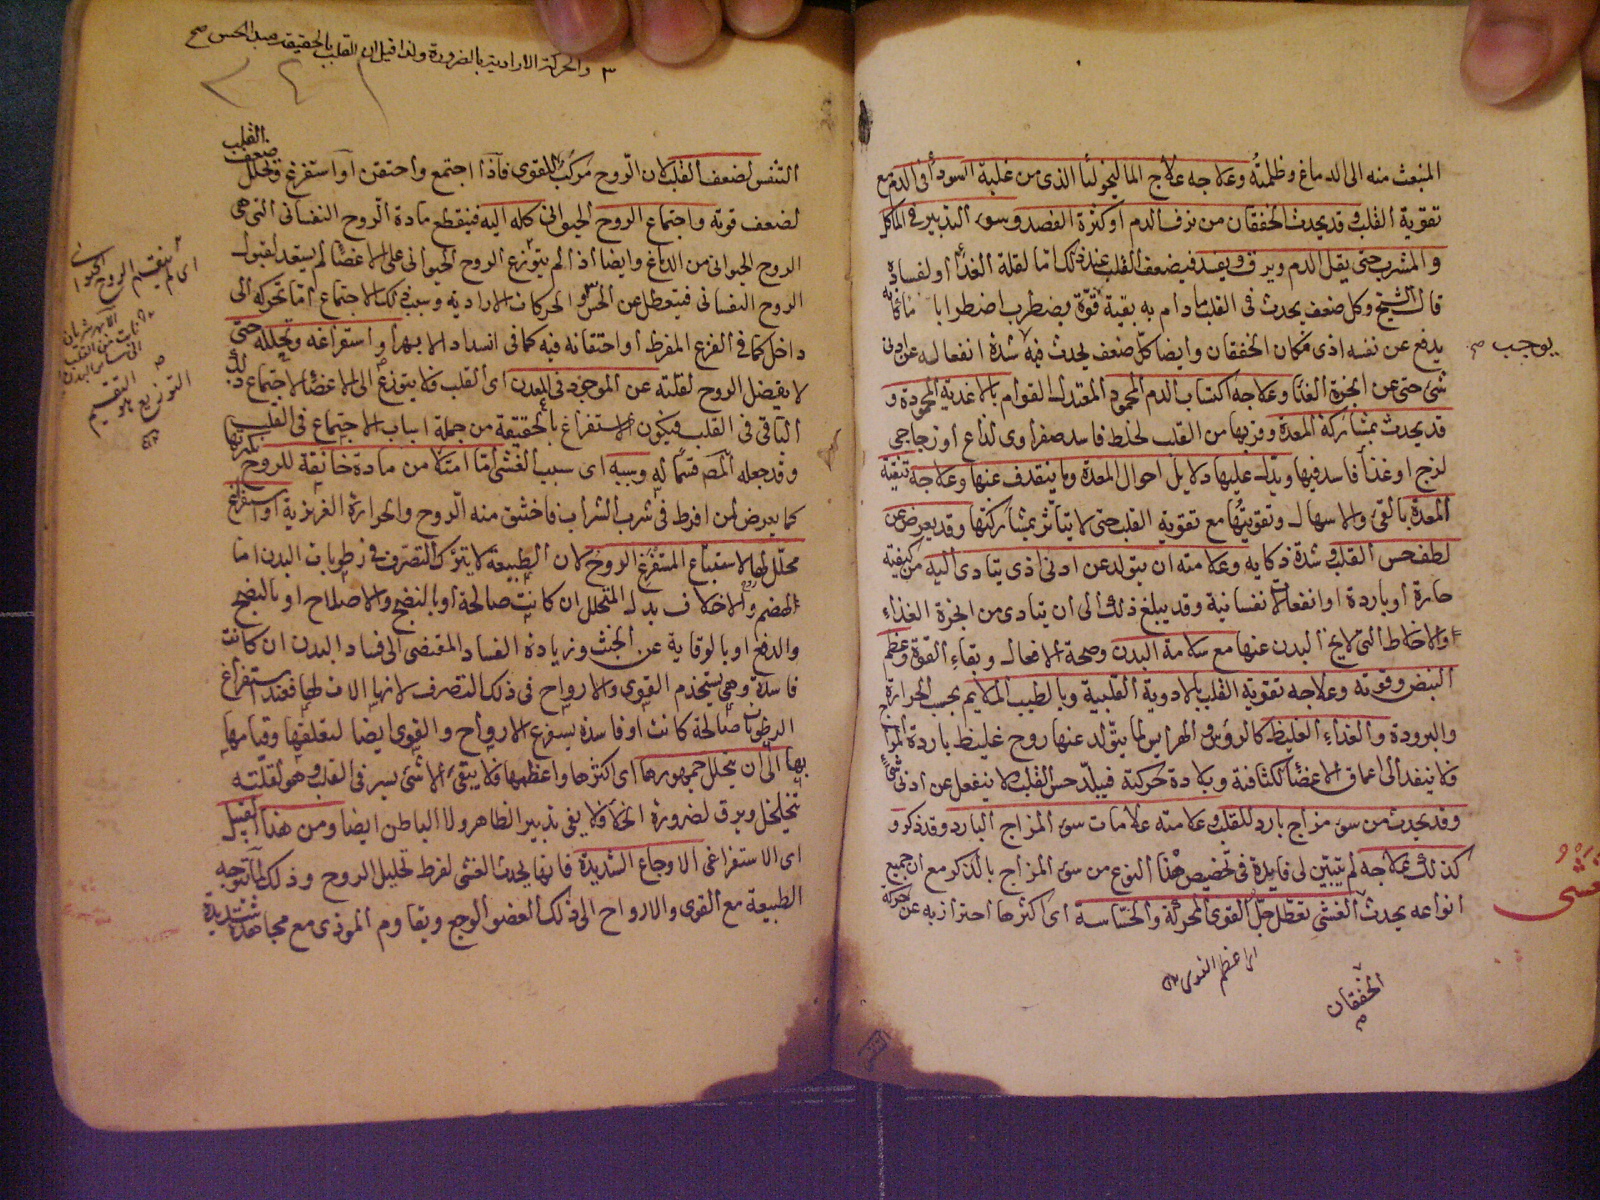 المنبعث منه الى الدماغ وظلمته وعلاجه علاج الماليخوليا الذى من غلبة السوداء فى الدم مع
تقوية القلب وقد يحدث الخفقان من نزف الدم او كثرة الفصد وسوء التدبير فى المأكل
والمشرب حتى يقل الدم ويرق ويفسد فيضعف القلب عند ذلك اما لقلة الغذاء او لفساده
قال الشيخ وكل ضعف يحدث فى القلب ما دام به بقية قوة يضطرب اضطرابا كأنه
يدفع عن نفسه اذى فكان الخفقان وايضا كل ضعف يحدث فيه شدة انفعاله عن ادنى
شئ حتى عن ابخرة الغذاء وعلاجه اكتساب الدم المحمود المعتدل القوام بالاغذية المحمودة و
قد يحدث بمشاركة المعدة وقربها من القلب لخلط فاسد صفراوى لذاع او زجاجى
لزج او غذاء فاسد فيها ويدل عليها دلايل احوال المعدة وما ينقذف عنها وعلاجه تنقية
المعدة بالقئ والاسهال وتقويتها مع تقوية القلب حتى لا يتأثر بمشاركتها وقد يعرض عن
لطف حس القلب وشدة ذكايه وعلامته ان يتولد عن ادنى اذى يتادى اليه من كيفية
حارة او باردة او انفعالات نفسانية وقد يبلغ ذلك الى ان يتادى من ابخرة الغذاء
والاخلاط التى لا يخ البدن عنها مع سلامة البدن وصحة الافعال وبقاء القوة وعظم
النبض وقوته وعلاجه تقوية القلب بالادوية القلبية وبالطيب الملايم بحسب الحرارة
والبرودة والغذاء الغليظ كالرؤس والهرايس لما يتولد عنها روح غليظ باردة المزاج
فلا ينفد الى اعماق الاعضاء لكثافته وبلادة حركته فيبلد حس القلب فلا ينفعل عن ادنى شئ
وقد يحدث من سوء مزاج بارد للقلب وعلامته علامات سوء المزاج البارد وقد ذكر و
كذلك علاجه لم يتبين لى فايدة فى تخصيص هذا النوع من سوء المزاج بالذكر مع ان جميع
انواعه يحدث الغشى تعطل جل القوى المحركة والحساسة اى اكثرها احترازا به عن حركة
يوجب صح
غشى
اى اعظم القوى
الخفقان
٣ والحركة الارادية بالضرورة ولذا قيل ان القلب بالحقيقة مبدأ الحس صح
التنفس لضعف القلب لان الروح مركب القوى فاذا اجتمع واحتقن او استفرغ وتحلل
ضعف القلب
لضعف قوته واجتماع الروح الحيوانى كله اليه فينقطع مادة الروح النفسانى التى هى
الروح الحيوانى من الدماغ وايضا اذا لم يتوزع الروح الحيوانى على الاعضاء لم يستعد لقبول
الروح النفسانى فيتعطل عن الحس والحركات الارادية وسبب ذلك الاجتماع اما تحركه الى
داخل كما فى الفزع المفرط او احتقانه فيه كما فى انسداد الابهر او استفراغه وتحلله حتى
لا يفضل الروح لقلته عن الموجود فى المعدن اى القلب فلا يتوزع الى الاعضاء لاجتماع ذلك
الباقى فى القلب فيكون الاستفراغ بالحقيقة من جملة اسباب الاجتماع فى القلب
وقد جعله المص قسما له وسببه اى سبب الغشى اما امتلاء من مادة خانقة للروح
كما يعرض لمن افرط فى شرب الشراب فاختنق منه الروح والحرارة الغريزية او استفراغ
محلل لها لاستتباع المستفرغ الروح لان الطبيعة لا تترك التصرف فى رطوبات البدن اما
بالهضم والاخلاف بدل المتحلل ان كانت صالحة او بالنضج والاصلاح او بالنضج
والدفع او بالوقاية عن الخبث وزيادة الفساد المقتضى الى فساد البدن ان كانت
فاسدة وهى يستخدم القوى والارواح فى ذلك التصرف لانها الات لها فعند استفراغ
الرطوبات صالحة كانت او فاسدة يستفرغ الارواح والقوى ايضا لتعلقها وقيامها
بها الى ان يتحلل جمهورها اى اكثرها واعظمها فلا يبقى الا شئ يسير فى القلب وهو لقلته
يتخلخل ويرق لضرورة الخلا فلا يفى تدبير الظاهر ولا الباطن ايضا ومن هذا القبيل
اى الاستفراغى الاوجاع الشديدة فانها يحدث الغشى لفرط تحليل الروح وذلك لما تتوجه
الطبيعة مع القوى والارواح الى ذلك العضو الوجع ويقاوم الموذى مع مجاهدة شديدة
اى لم ينقسم الروح الحيوانى
الابهر شريان
التوزيع هو التقسيم